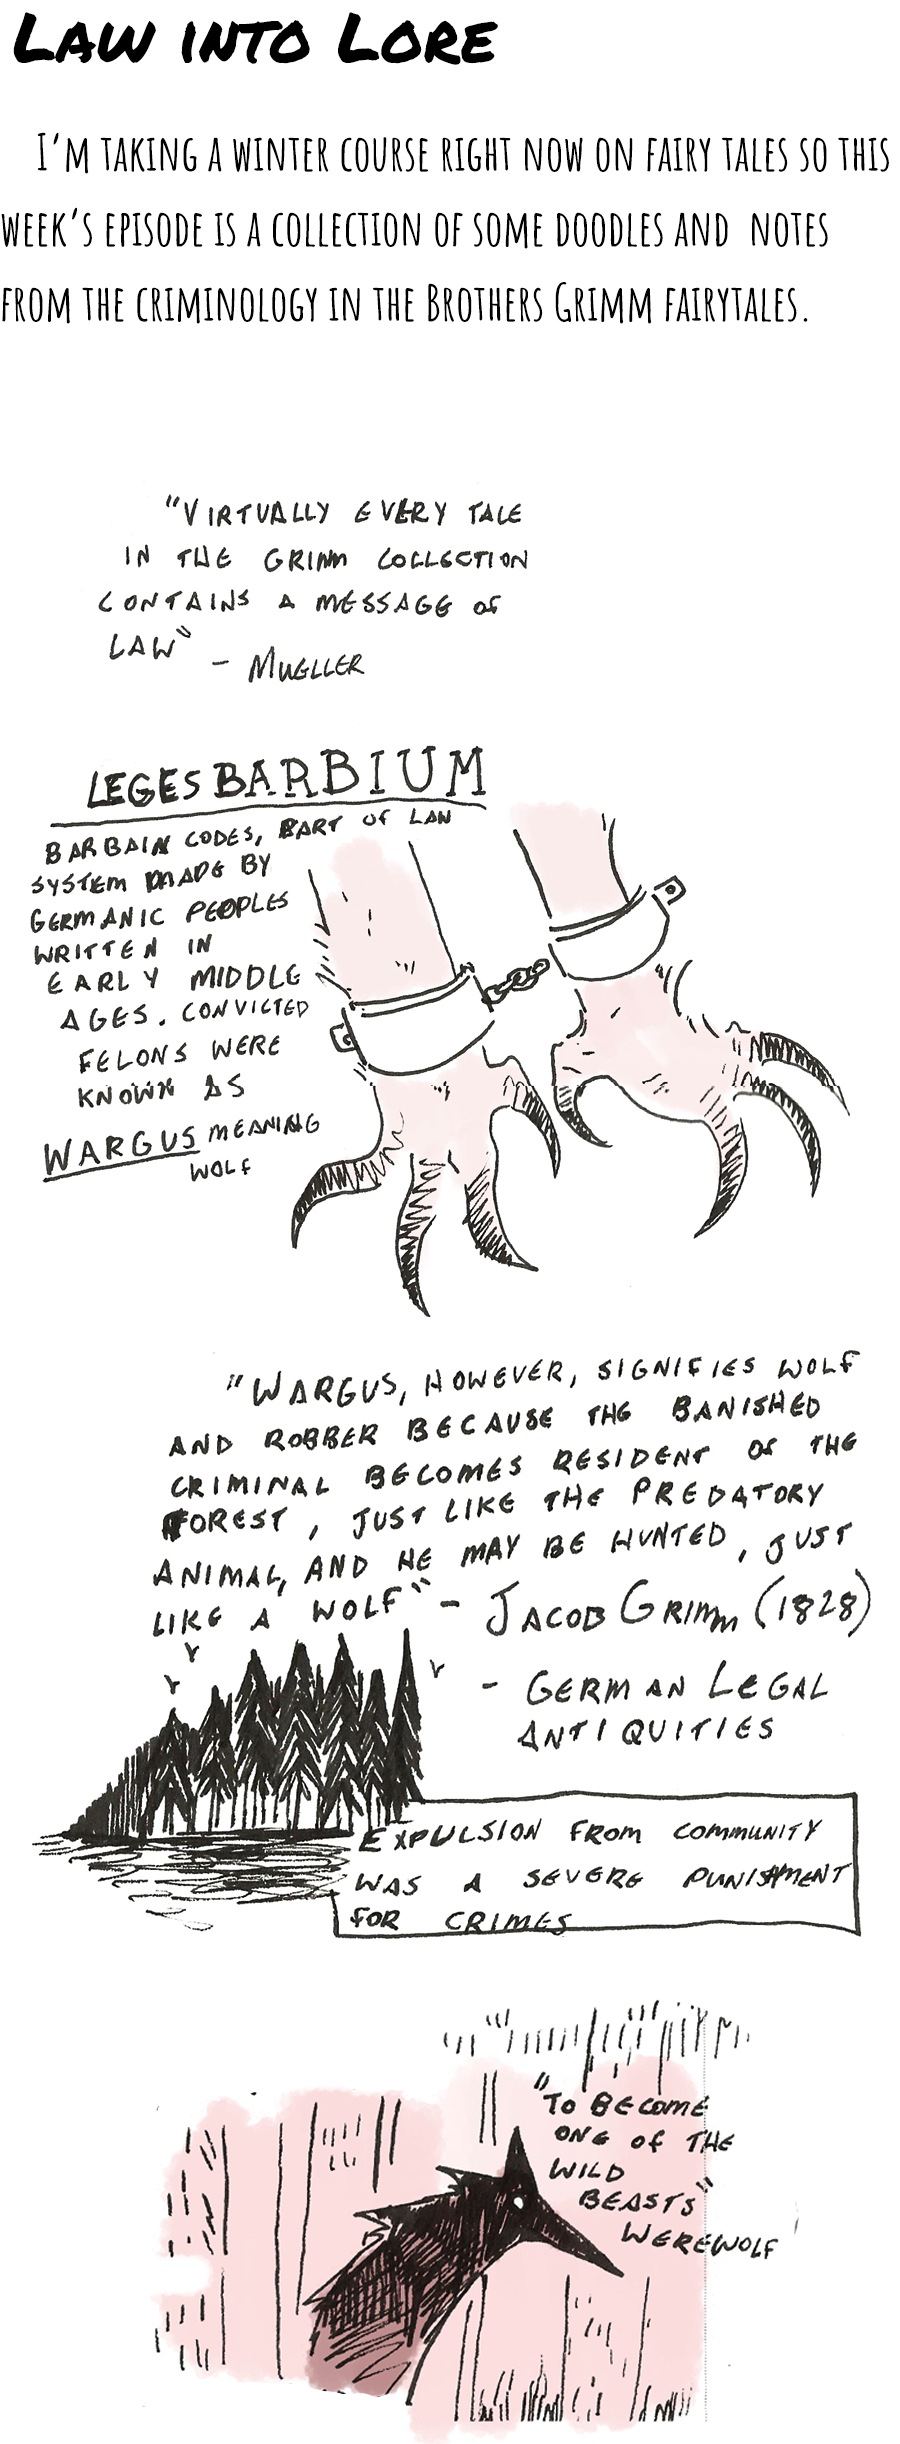 Law into Lore
I'm taking a winter course right now on fairy tales so this
week's episode is a collection of some doodles and notes
from the criminology in the Brothers Grimm fairytales.
"Virtually every tale
in the Grimm collection
contains a message of
law"
- Mueller
LEGES BARBIUM
Barbain codes, part of law
system made by
Germanic peoples
written in
early middle
ages. Convicted
felons were
known as
WARGUS meaning
wolf
"Wargus, however, signifies wolf
and robber because the banished
criminal becomes resident of the
forest, just like the predatory
animal, and he may be hunted, just
like a wolf" - Jacob Grimm (1828)
- German Legal
Antiquities
Expulsion from community
was a severe punishment
for crimes
"To become
one of the
wild
beasts"
werewolf